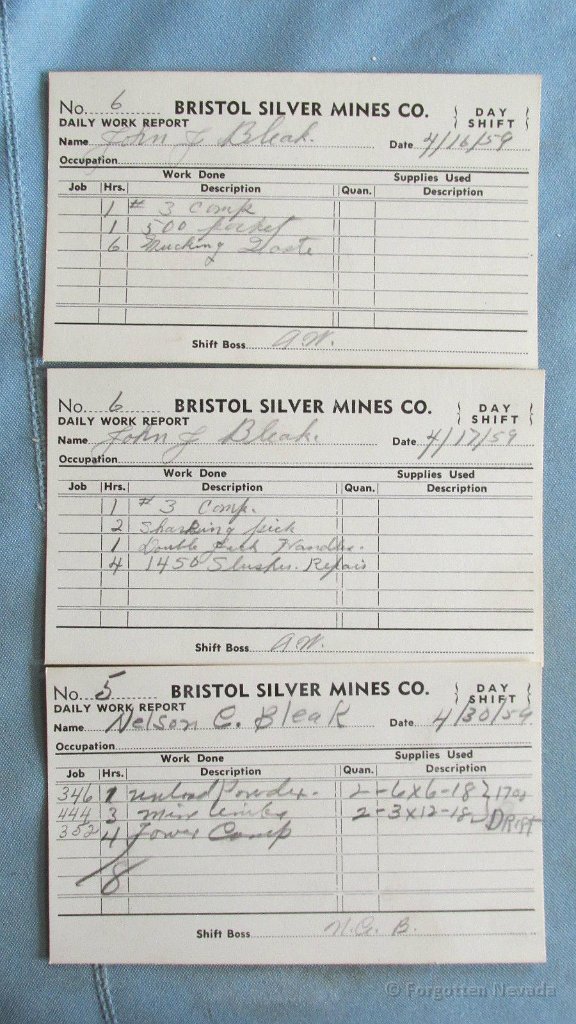 No. 6 BRISTOL SILVER MINES CO. DAY SHIFT
DAILY WORK REPORT
Name John J Bleak. Date 4/16/59
Occupation
Work Done Supplies Used
Job Hrs. Description Quan. Description
1 # 3 Comp
1 500 pocket
6 Mucking Waste
Shift Boss A.W.
No. 6 BRISTOL SILVER MINES CO. DAY SHIFT
DAILY WORK REPORT
Name John J Bleak. Date 4/17/59
Occupation
Work Done Supplies Used
Job Hrs. Description Quan. Description
1 # 3 Comp.
2 Sharking pick
1 Double Jack Handles.
4 1450 Slusher. Repair
Shift Boss A.W.
No. 5 BRISTOL SILVER MINES CO. DAY SHIFT
DAILY WORK REPORT
Name Nelson C. Bleak Date 4/30/59
Occupation
Work Done Supplies Used
Job Hrs. Description Quan. Description
346 1 unload Powder. 2-6x6-18
444 3 mine timbs 2-3x12-18 Drift
352 4 Tower Comp
8
Shift Boss N.G.B.
© Forgotten Nevada